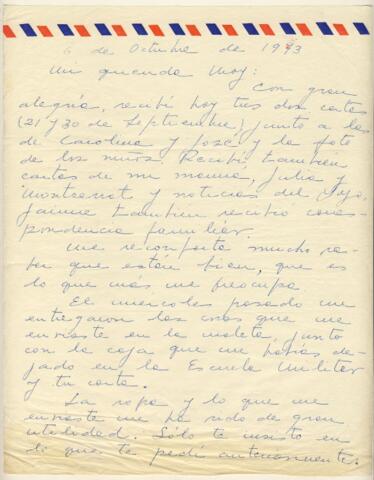 6 de Octubre de 1973
Mi querida Moy:
Con gran
alegría, recibí hoy tres dos cartas
(21 y 30 de Septiembre), junto a las
de Carolina y José y la foto
de los niños. Recibí también
cartas de mi mamá, Julia y
Montserrat y noticias del Lejo.
Jaime también recibió corres-
pondencia familiar.
Me reconforta mucho sa-
ber que estén bien, que es
lo que más me preocupa.
El miércoles pasado me
entregaron las cosas que me
enviaste en la maleta, junto
con la caja que me habías de-
jado en la Escuela Militar
y tu carta.
La ropa y lo que me
enviaste me ha sido de gran
utilidad. Sólo te insisto en
lo que te pedí anteriormente.